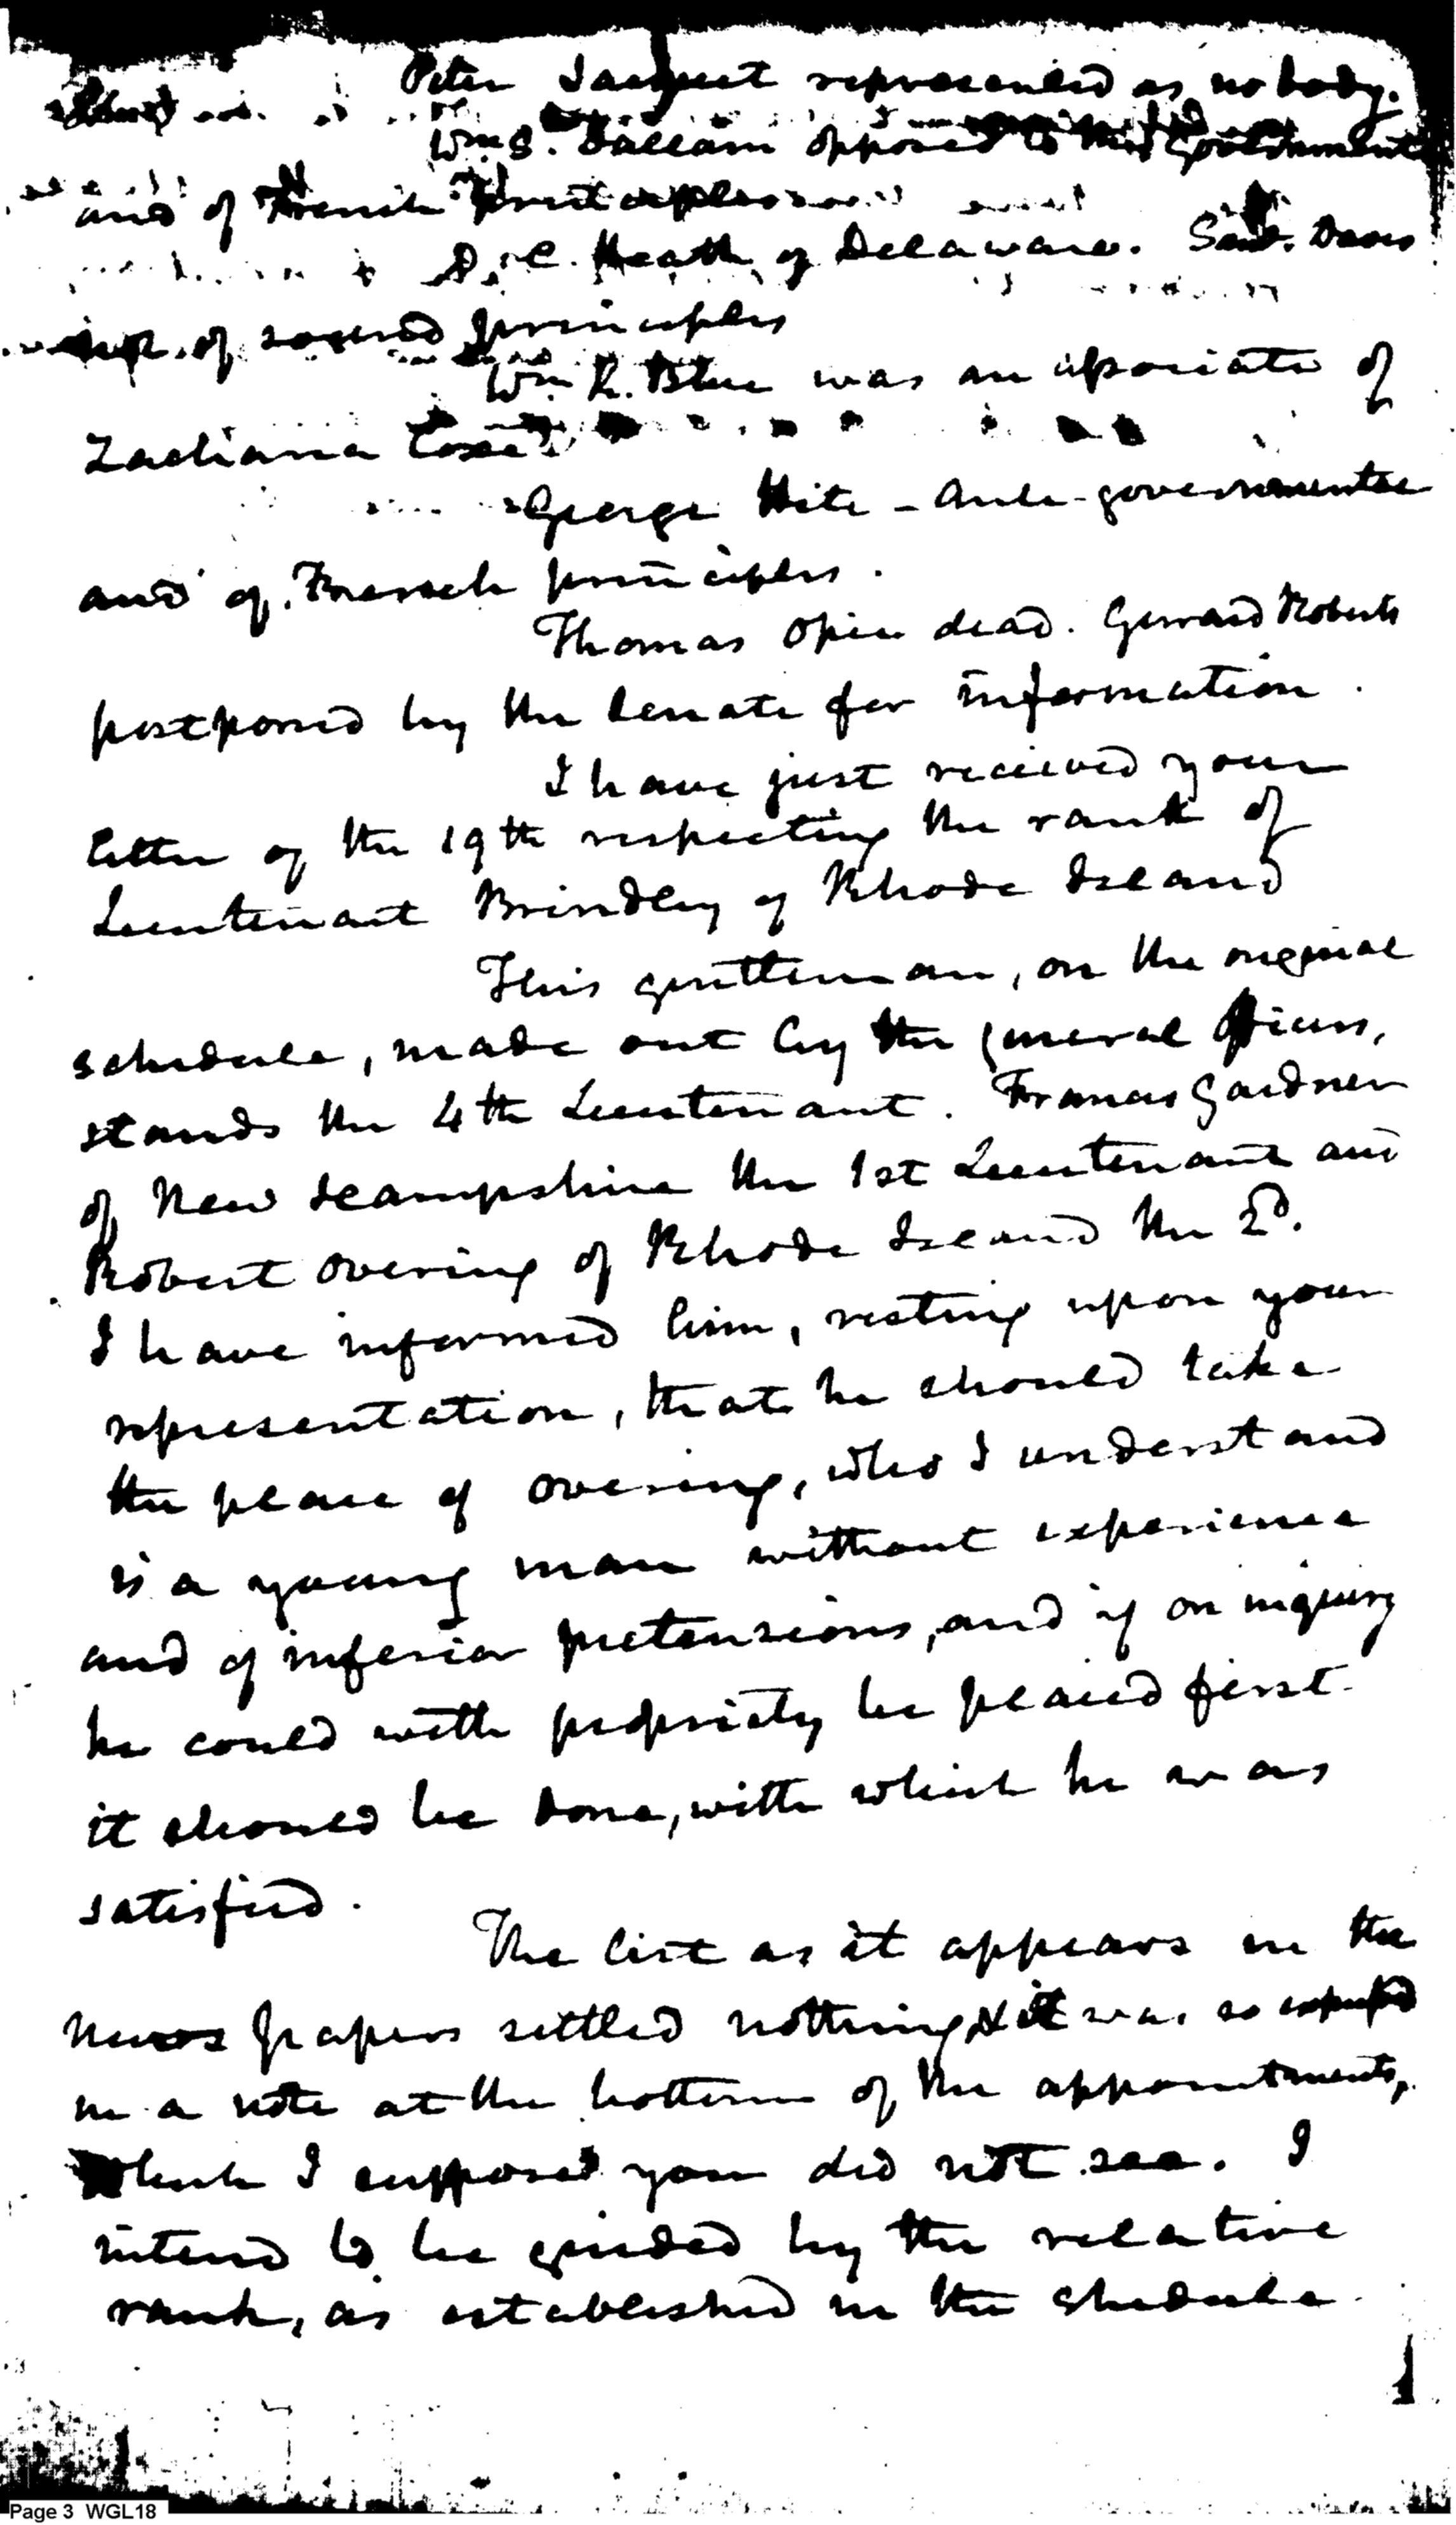 Peter Jacquet represented as nobody.
Wm S. Dallam opposed to the Government
and of French principles
D. C. Heath of Delaware. Saml. Davis
of sound principles
Wm K. Blue was an associate of
Zachariah Coxe
George Hite - Anti-governmental
and of French principles.
Thomas Opie dead. Gerrard Roberts
postponed by the Senate for information.
I have just recieved your
letter of the 19th respecting the rank of
Lieutenant Brindley of Rhode Island
This gentleman, on the original
schedule, made out by the general officers,
stands the 4th Lieutenant. Francis Gardner
of New Hampshire the 1st Lieutenant and
Robert Overing of Rhode Island the 2d.
I have informed him, resting upon your
representation, that he should take
the place of Overing, who I understand
is a young man without experience
and of inferior pretensions, and if on inquiry
he could with propriety be placed first
it should be done, with which he was
satisfied.
The list as it appears in the
news papers settled nothing & it was so expressed
in a note at the bottom of the appointments,
which I suppose you did not see. I
intend to be guided by the relative
rank, as established in the shedule
Page 3 WGL18